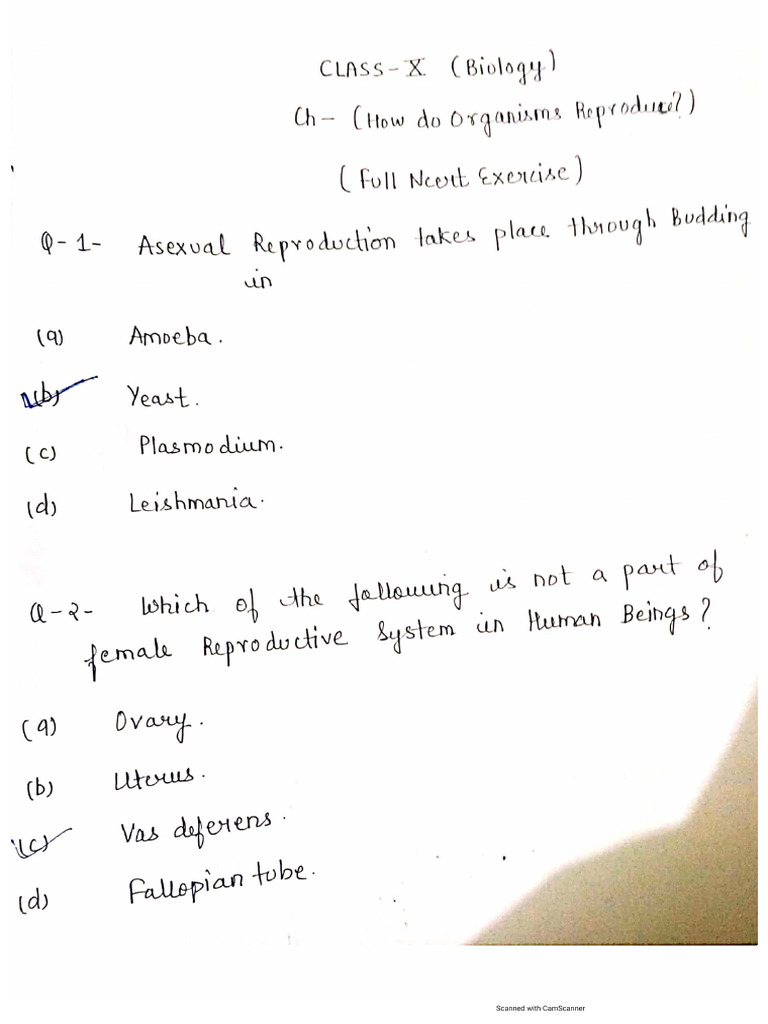 CLASS-X (Biology)
Ch- (How do Organisms Reproduce?)
(Full Ncert Exercise)
Q-1- Asexual Reproduction takes place through Budding
in
(a) Amoeba.
(b) Yeast.
(c) Plasmodium.
(d) Leishmania.
Q-2- Which of the following is not a part of
female Reproductive System in Human Beings?
(a) Ovary.
(b) Uterus.
(c) Vas deferens.
(d) Fallopian tube.
Scanned with CamScanner